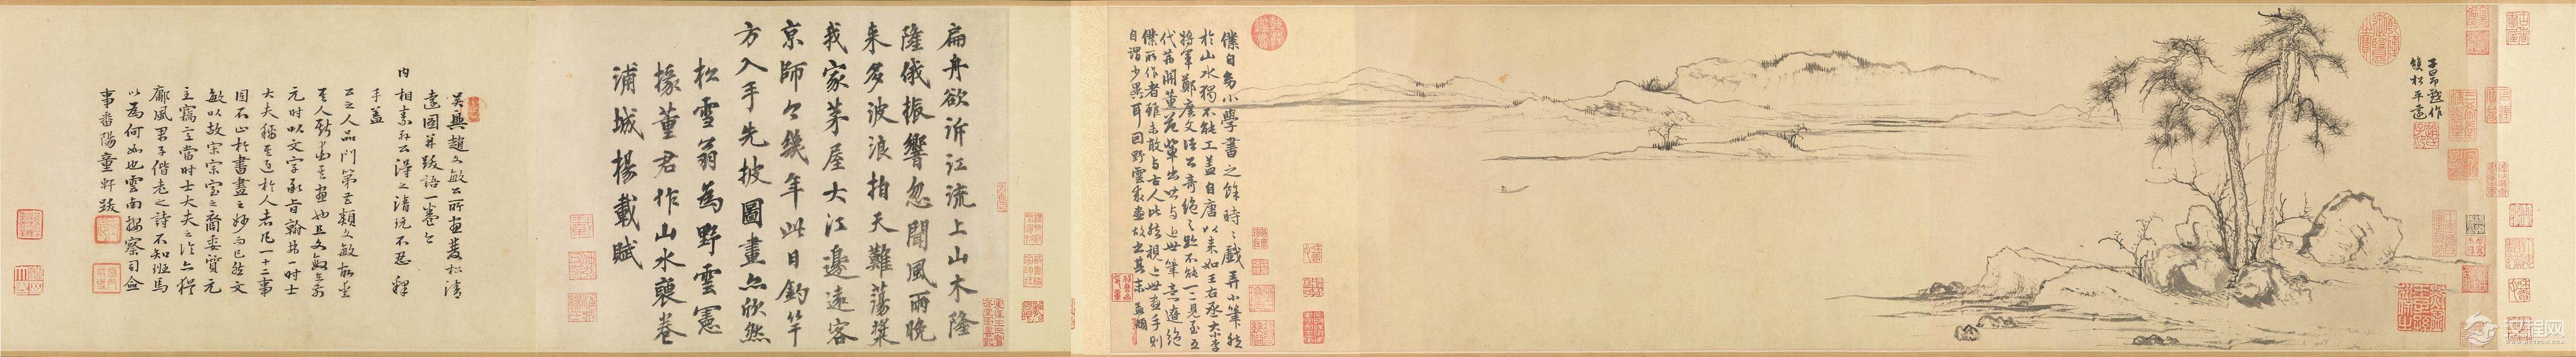 子昂戲作
雙松平遠
僕自幼小學書之餘時時戲弄小筆然
於山水獨不能工蓋自唐以來如王右丞大小李
將軍鄭廣文諸公奇絕之跡不能一二見至五
代荊關董范輩出皆與近世筆意遼絕
僕所作者雖未敢與古人比然視近世畫手則
自謂少異耳因野雲求畫故書其末孟頫
扁舟欲泝江流上山木隆
隆俄振響忽聞風雨晚
來多波浪拍天難蕩槳
我家茅屋大江邊遠客
京師今幾年此日釣竿
方入手先披圖畫亦欣然
松雪翁為野雲憲
掾董君作山水裏卷
浦城楊載賦
吳興趙文敏公所畫雙松清
遠圖并跋語一卷今
內相素軒公得之清玩不忍釋
手蓋
公之人品門第與
元時以文字承旨翰林一時士
大夫稱其過於人者凡一十二事
固不止於書畫之妙而已然文
敏以故宋宗室之裔委質元
主竊意當時士大夫之
鄘風君子偕老之詩不知班馬
以為何如也雲南按察司僉
事番陽童軒跋